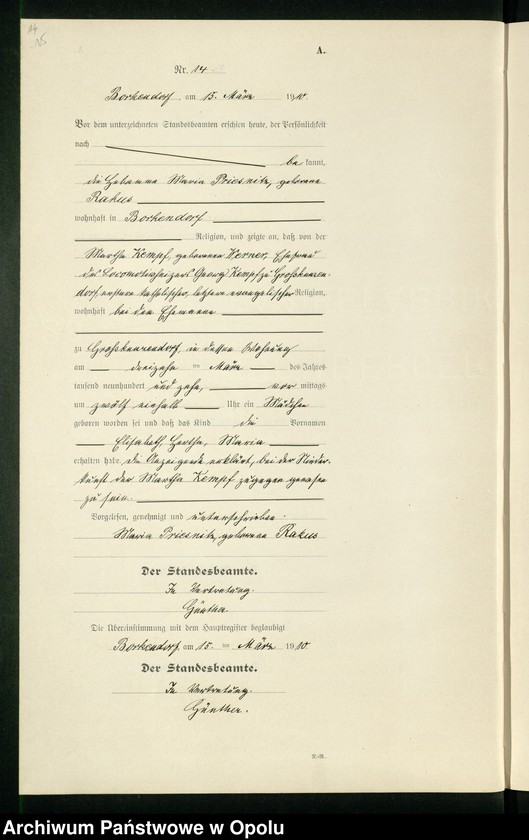 14
15
A.
Nr. 14
Borkendorf, am 15. März 1910.
Vor dem unterzeichneten Standesbeamten erschien heute, der Persönlichkeit
nach
be kannt,
die Hebamme Maria Priesnitz, geborene
Rakus
wohnhaft in Borkendorf
Religion, und zeigte an, daß von der
Martha Kempf, geborenen Werner, Ehefrau
des Locomotivheizers Georg Kempf zu Großkunzen-
dorf, erstere katholischer, letzterer evangelischer Religion,
wohnhaft bei dem Ehemanne
zu Großkunzendorf, in dessen Wohnung
am dreizehn ten März des Jahres
tausend neunhundert und zehn, vor mittags
um zwölf einhalb Uhr ein Mädchen
geboren worden sei und daß das Kind die Vornamen
Elisabeth, Hertha, Maria
erhalten habe. Die Anzeigende erklärt, bei der Nieder-
kunft der Martha Kempf zugegen gewesen
zu sein.
Vorgelesen, genehmigt und unterschrieben.
Maria Priesnitz, geborene Rakus
Der Standesbeamte.
In Vertretung.
Günther.
Die Übereinstimmung mit dem Hauptregister beglaubigt
Borkendorf, am 15. ten März 1910.
Der Standesbeamte.
In Vertretung.
Günther.
Archiwum Państwowe w Opolu